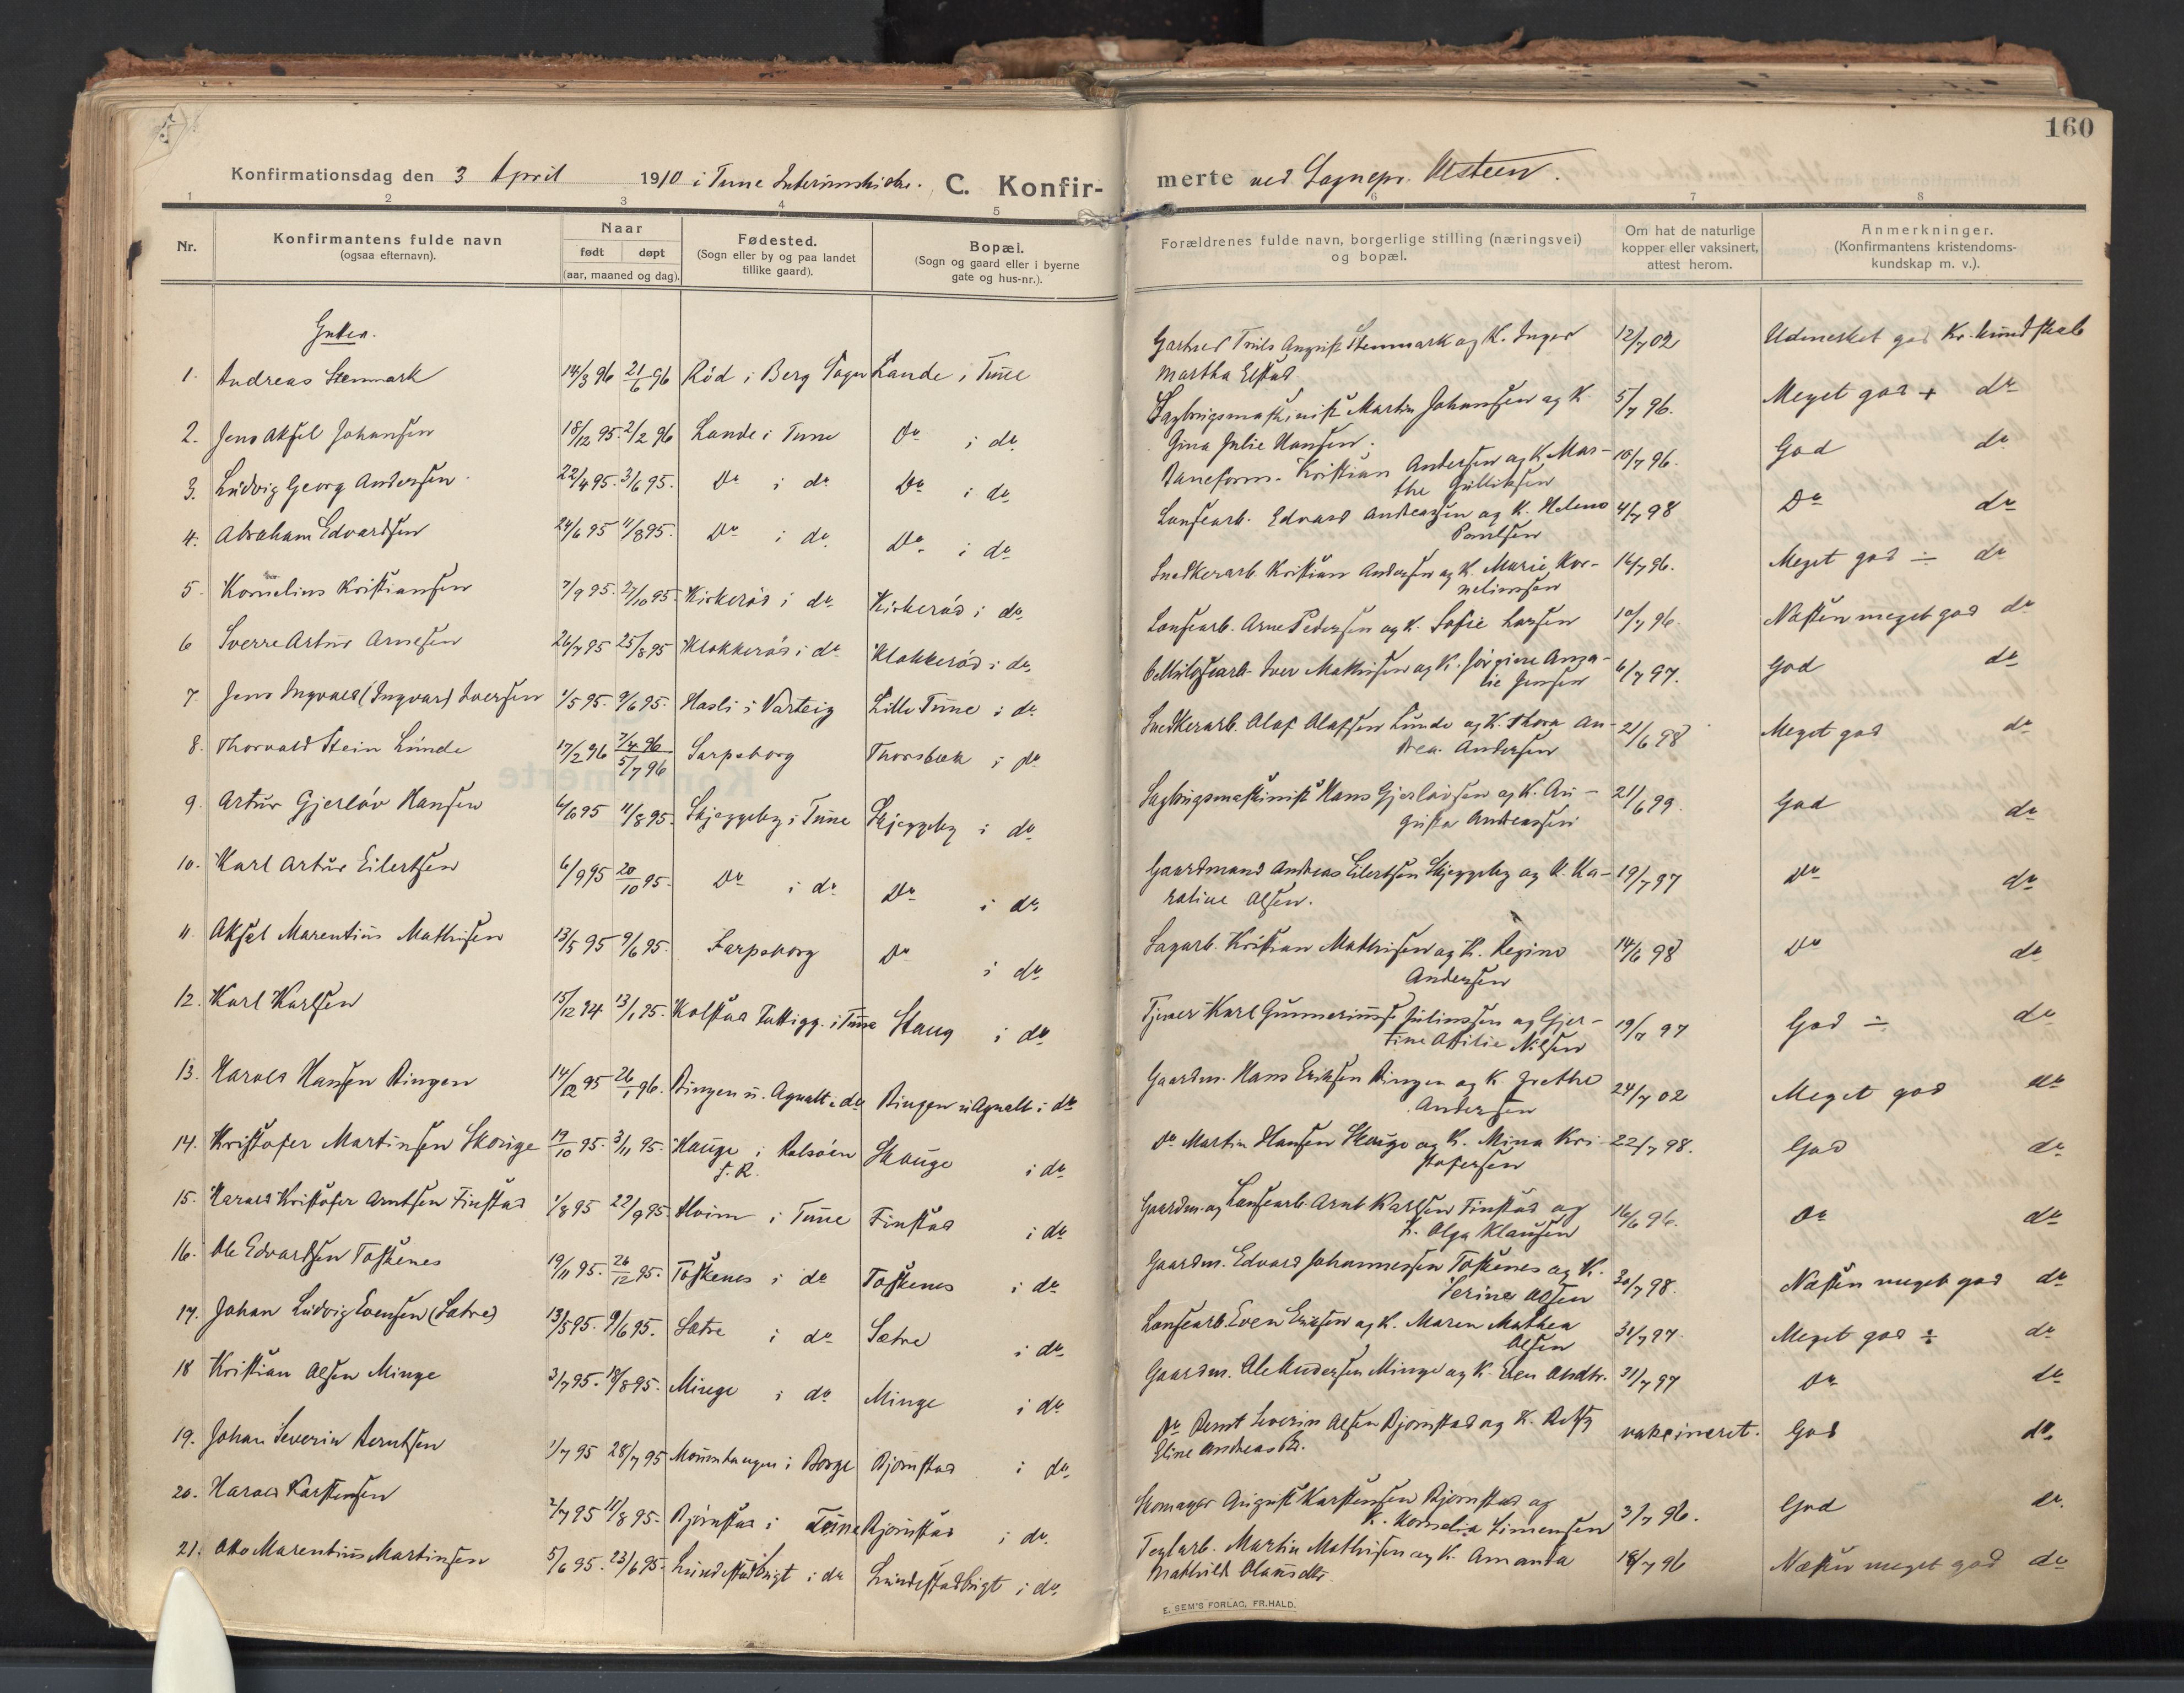 160
Konfirmationsdag den 3 April 1910 i Tune Interimskirke. C. Konfir-
merte ved Sognepr. Østeen.
1 2 3 4 5 6 7 8
Nr.
Konfirmantens fulde navn
(ogsaa efternavn).
Naar
født døpt
(aar, maaned og dag).
Fødested.
(Sogn eller by og paa landet
tillike gaard).
Bopæl.
(Sogn og gaard eller i byerne
gate og hus-nr.).
Forældrenes fulde navn, borgerlige stilling (næringsvei)
og bopæl.
Om hat de naturlige
kopper eller vaksinert,
attest herom.
Anmerkninger.
(Konfirmantens kristendoms-
kundskap m. v.).
Gutter.
1. Andreas Stenmark 14/3 96 21/6 96 Röd i Berg Sogn Lande i Tune Gartner Truls August Stenmark og K. Inger 12/7 02 Udmerket god Kr. kundskab
Martha Elstad
2. Jens Aksel Johansen 18/12 95. 2/2 96 Lande i Tune Do i do. Sagbrugsmaskinist Martin Johansen og K 5/7 96. Meget god + do
Gina Julie Hansen.
3. Ludvig Georg Andersen 22/4 95. 3/6 95. Do i do Do i do Baneform. Kristian Andersen og K. Mar- 10/7 96. God do
the Gulliksen
4. Abraham Edvardsen 24/6 95 11/8 95. Do i do. Do. i do Lønsearb. Edvard Andreassen og K. Helene 4/7 98 Do do
Paulsen
5. Kornelius Kristiansen 7/9 95. 27/10 95. Kirkeröd i do. Kirkeröd i do. Snedkerarb. Kristian Andersen og K. Marie Kor- 16/7 96. Meget god ÷ do
neliussen
6 Sverre Artur Arnesen 26/7 95 25/8 95 Klokkeröd i do Klokkeröd i do. Lønsearb. Arne Pedersen og K. Sofie Larsen 10/7 96. Næsten meget god do
7. Jens Ingvald (Ingvar) Iversen 1/5 95. 9/6 95. Hasli i Varteig Lille Tune i do. Iver Mathisen og K. Jörgine Ama- 6/7 97. God do
lie Jensen
8. Thorvald Stein Lunde 17/2 96 7/4 96 Sarpsborg Thorsbæk i do Snedkerarb. Olaf Olafsen Lunde og K. Thora An- 21/6 98 Meget god do
5/7 96 drea Andersen
9. Artur Gjerlöv Hansen 4/6 95 11/8 95. Skjeggeby i Tune Skjeggeby i do Sagbrugsmaskinist Hans Gjerlövsen og K. Au- 21/6 99. God do
gusta Andreassen
10. Karl Artur Eilertsen 6/9 95 20/10 95. Do i do Do i do. Gaardmand Andreas Eilertsen Skjeggeby og K. Ka- 19/7 97 Do do
roline Olsen.
11. Aksel Marentius Mathisen 13/5 95 9/6 95. Sarpsborg Do i do. Sagarb. Kristian Mathisen og K. Regine 14/6 98 Do do
Andersen
12. Karl Karlsen 15/12 94 13/1 95. Kolstad Fattigg. i Tune Stang i do Tjener Karl Gunnerius Juliussen og Gjer- 19/7 97 God ÷ do
tine Ottilie Nilsen
13. Harald Hansen Ringen 14/12 95 26/1 96. Ringen u. Agnalt i do Ringen u Agnalt i do Gaardm. Hans Eriksen Ringen og K. Grethe 24/7 02 Meget god do
Andersen
14. Kristofer Martinsen Skouge 19/10 95. 3/11 95. Hauge i Rolsöen Skouge i do Do. Martin Hansen Skouge og K. Mina Kri- 22/7 98. God do
S. R. stofersen
15. Harald Kristofer Arntsen Finstad 1/8 95 22/9 95. Hvim i Tune Finstad i do Gaardm. og Lønsearb. Arnt Karlsen Finstad og 16/6 96. Do do
K. Olga Klausen
16. Ole Edvardsen Toskenes 19/11 95. 26/12 95. Toskenes i do Toskenes i do Gaardm. Edvard Johannessen Toskenes og K. 30/7 98. Næsten meget god do
Serine Olsen
17. Johan Ludvig Evensen (Sætre) 13/5 95. 9/6 95. Sætre i do Sætre i do Lønsearb. Even Eriksen og K. Maren Mathea 31/7 97. Meget god ÷ do
Olsen
18 Kristian Olsen Minge 3/7 95. 18/8 95. Minge i do Minge i do Gaardm. Ole Andersen Minge og K. Elen Andtr. 31/7 97 Do do
19. Johan Severin Berntsen 1/7 95 28/7 95 i Borge Bjørnstad i do Do Bernt Severin Olsen Bjørnstad og K. Betsy vaksineret. God do.
Eline Andreas Dr.
20. Harald Karstensen 2/7 95 11/8 95. Bjørnstad i Tune Bjørnstad i do. Skomager August Karstensen Bjørnstad og 3/7 96. God do.
K. Kornelia Simensen
21. Otto Marentius Martinsen 5/6 95. 23/6 95. Lundestadbrigt i do Lundestadbrigt i do. Teglarb. Martin Mathisen og K. Amanda 18/7 96 Næsten meget god do
Mathilde Olausdtr
E. SEM'S FORLAG, FR.HALD.